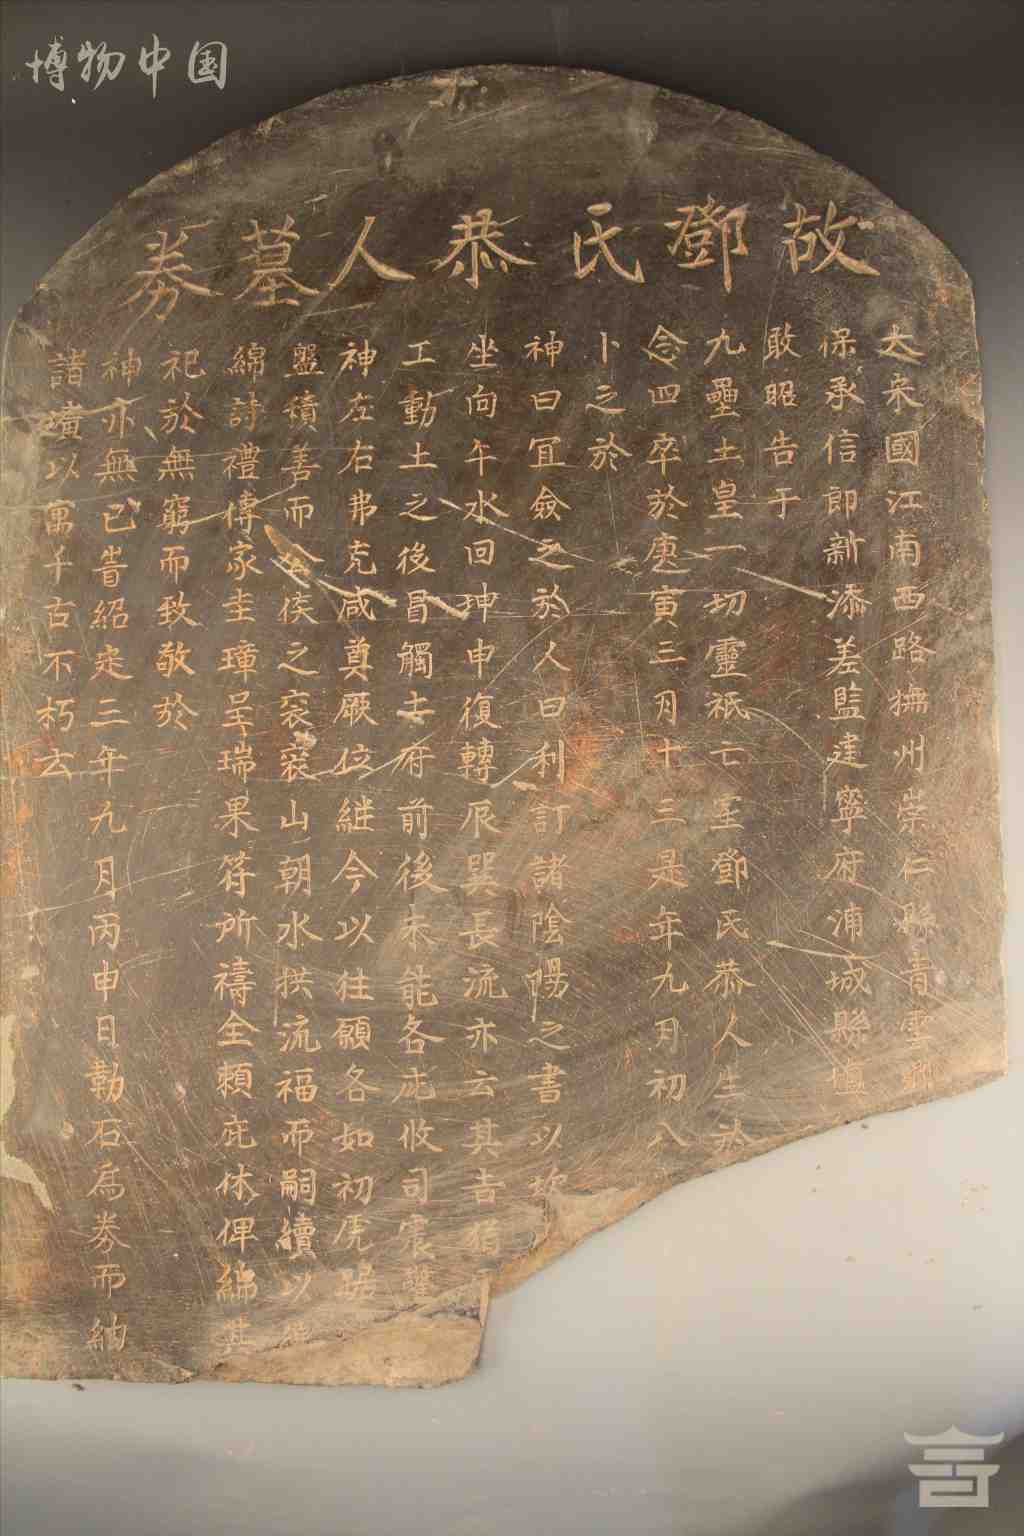 博物中国
故鄧氏恭人墓券
大宋國江南西路撫州崇仁縣青雲鄉
保承信郎新添差監建寧府浦城縣
敢昭告于
九壘土皇一切靈祇亡室鄧氏恭人生於
念四卒於庚寅三月十三是年九月初八
卜之於
神曰宜僉之於人曰利訂諸陰陽之書以
坐向午水回坤申復轉辰巽長流亦云其吉猶
工動土之後冒觸土府前後未能各
神左右弗克咸奠厥位継今以往願各如初虎踞
盤積善而公侯之衮衮山朝水拱流福而嗣續以
綿詩禮傳家圭璋呈瑞果符所禱全頼庇休俾綿其
祀於無窮而致敬於
神亦無已旹紹定三年九月丙申日勒石為券而納
諸壙以寓千古不朽云